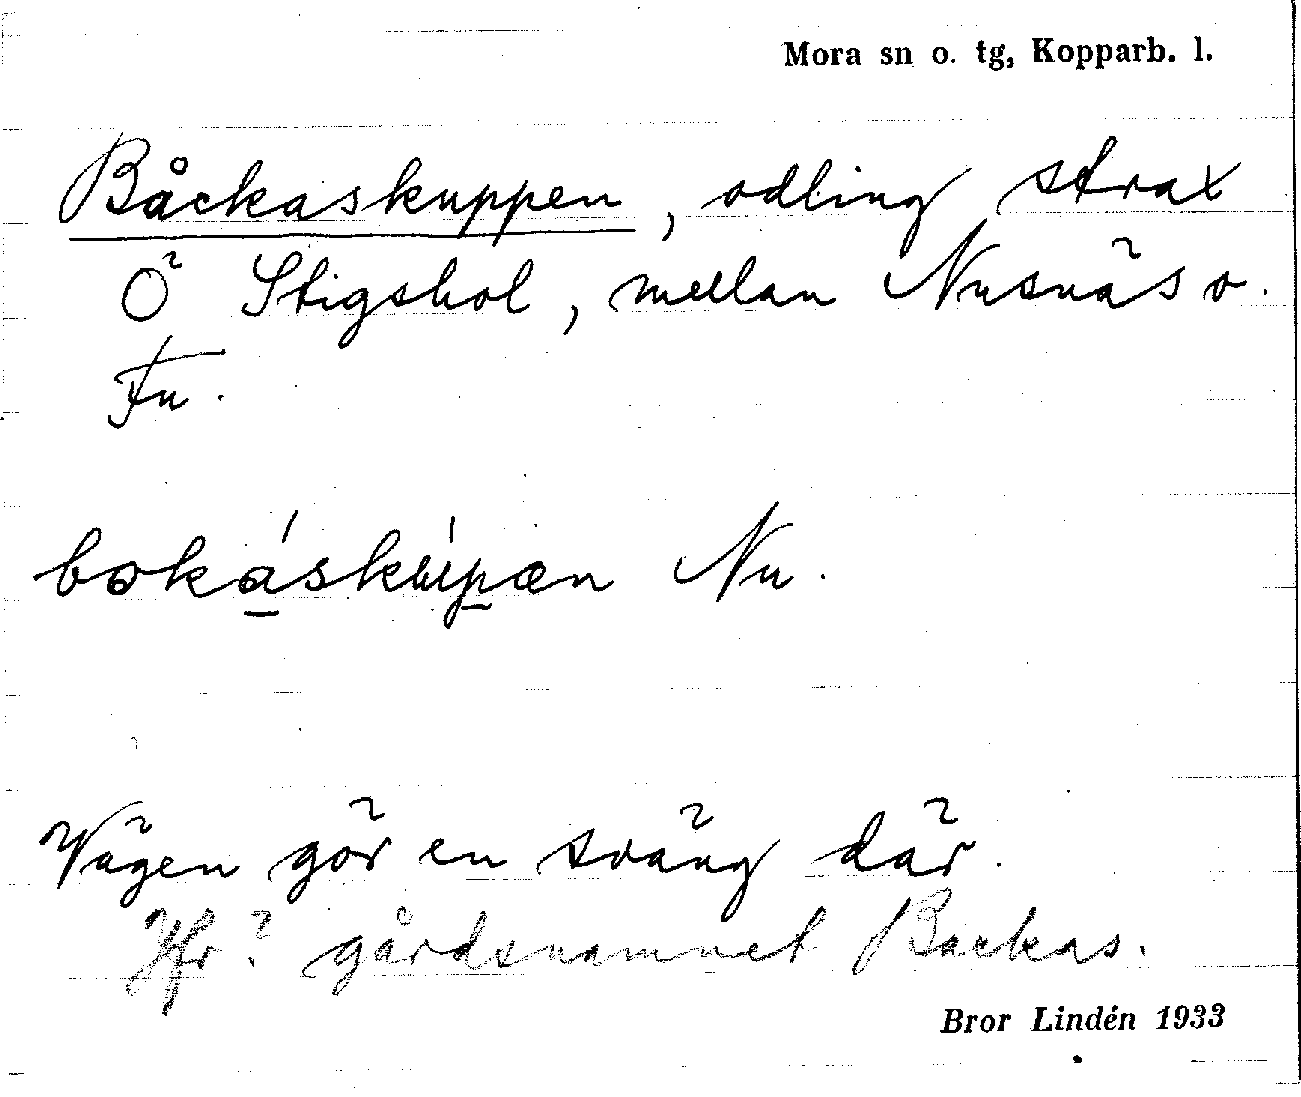 Mora sn o. tg, Kopparb. l.
Båckaskuppen, odling strax
Ö Stigshol, mellan Nusnäs o.
Fu.
bokáskúpæn Nu.
Vägen gör en sväng där.
Jfr? gårdsnamnet Backas.
Bror Lindén 1933